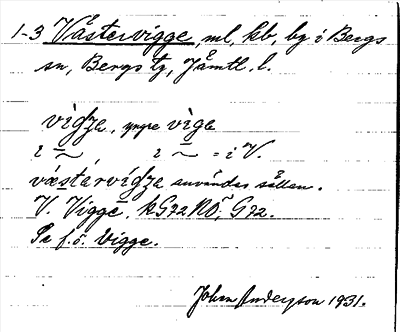 1-3 Västervigge, ml, kb, by i Bergs
sn, Bergs tg, Jämtl. l.
vìgʒa, yngre vìga
i V.
væstərvígʒa användes sällan.
V. Vigge, kG72NÖ, G72.
Se f.ö. Vigge.
John Anderzon 1931.